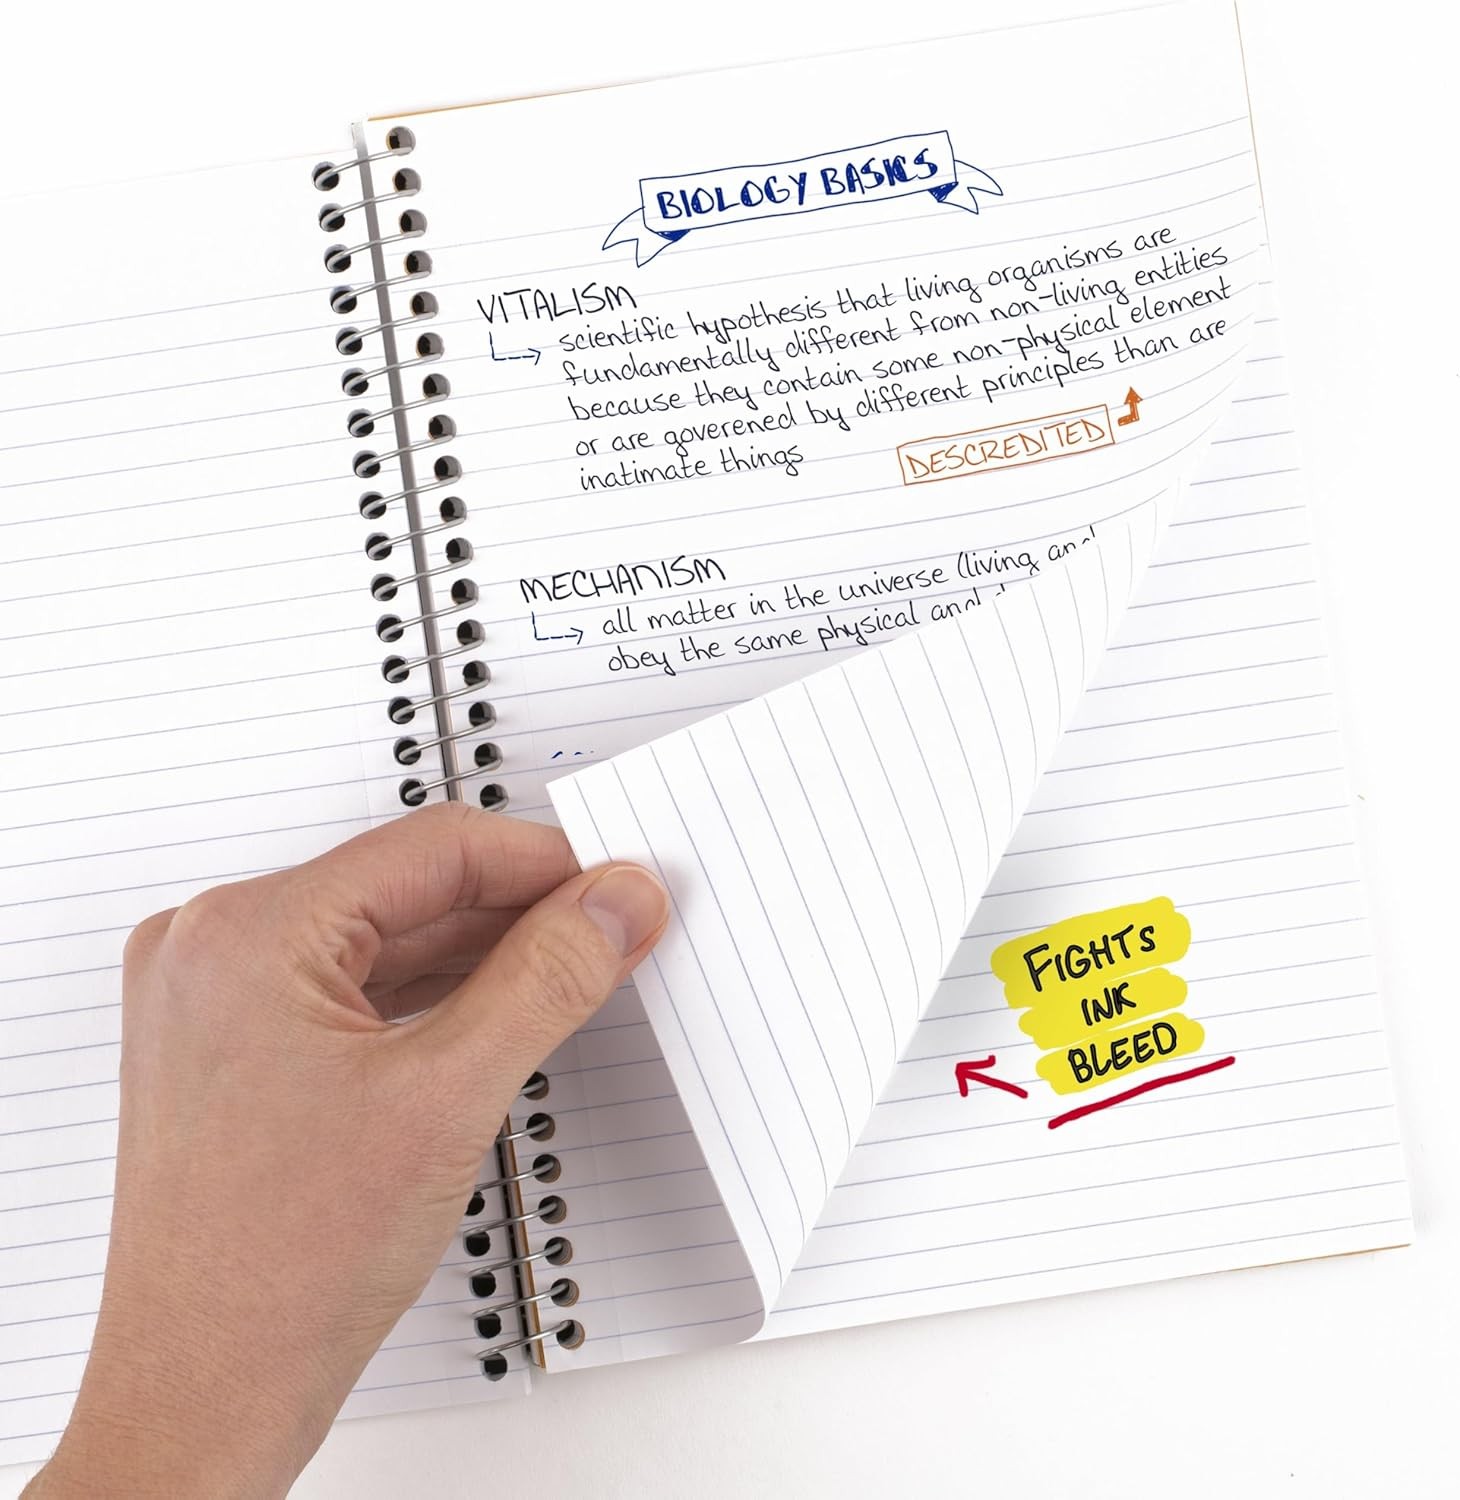 BIOLOGY BASICS
VITALISM
scientific hypothesis that living organisms are
fundamentally different from non-living entities
because they contain some non-physical element
or are goverened by different principles than are
inatimate things
DESCREDITED
MECHANISM
all matter in the universe (living and
obey the same physical and
FIGHTS
INK
BLEED